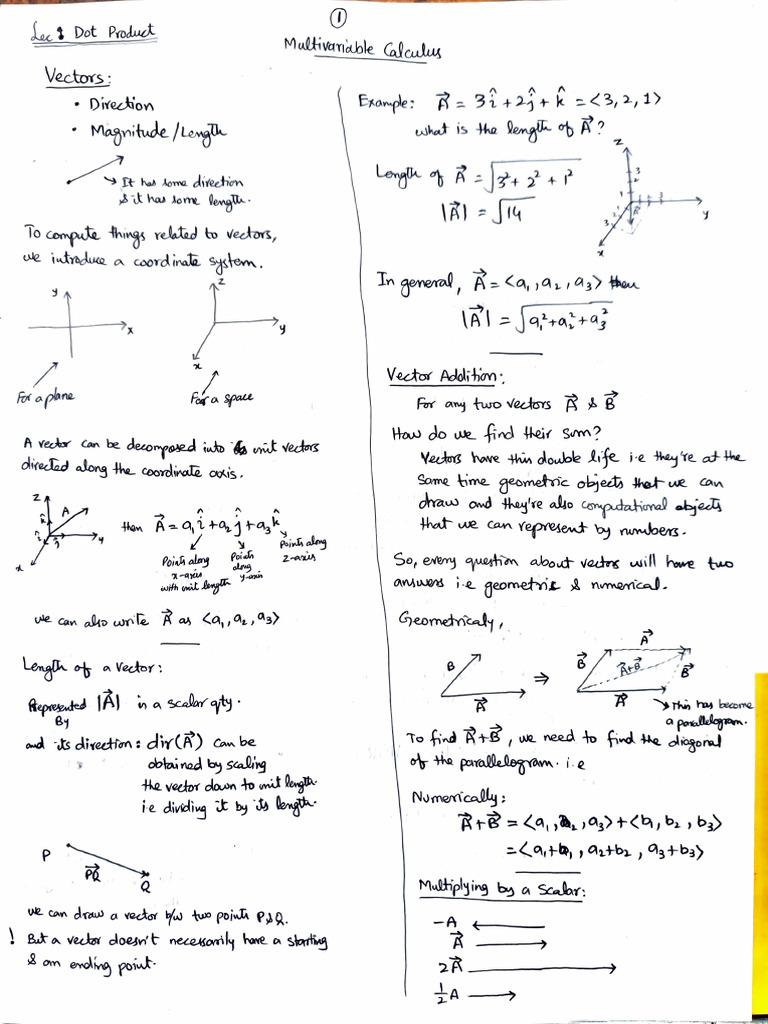 ①
Lec 1 Dot Product
Multivariable Calculus
Vectors:
• Direction
• Magnitude/Length
→ It has some direction
& it has some length.
To compute things related to vectors,
we introduce a coordinate system.
y
x
z
y
x
For a plane
For a space
A vector can be decomposed into unit vectors
directed along the coordinate axis.
z
A
k̂
î
ĵ
y
x
then A⃗ = a₁î + a₂ĵ + a₃k̂
Points along
x-axis
with unit length
Points
along
y-axis
Points along
z-axis
we can also write A⃗ as <a₁, a₂, a₃>
Length of a vector:
Represented |A⃗| is a scalar qty.
By
and its direction: dir(A⃗) can be
obtained by scaling
the vector down to unit length.
i.e dividing it by its length.
P
PQ⃗
Q
we can draw a vector b/w two points P & Q.
! But a vector doesn't necessarily have a starting
& an ending point.
Example: A⃗ = 3î + 2ĵ + k̂ = <3, 2, 1>
what is the length of A⃗?
z
3
2
1
1 2 3
y
1
2
3
A⃗
x
Length of A⃗ = √3² + 2² + 1²
|A⃗| = √14
In general, A⃗ = <a₁, a₂, a₃> then
|A⃗| = √a₁² + a₂² + a₃²
Vector Addition:
For any two vectors A⃗ & B⃗
How do we find their sum?
Vectors have this double life i.e they're at the
same time geometric objects that we can
draw and they're also computational objects
that we can represent by numbers.
So, every question about vectors will have two
answers i.e geometric & numerical.
Geometricaly,
B
A⃗
⇒
A⃗
B⃗
A⃗+B⃗
B⃗
A⃗
→ This has become
a parallelogram.
To find A⃗+B⃗, we need to find the diagonal
of the parallelogram. i.e
Numerically:
A⃗+B⃗ = <a₁, a₂, a₃> + <b₁, b₂, b₃>
= <a₁+b₁, a₂+b₂, a₃+b₃>
Multiplying by a Scalar:
-A
A⃗
2A⃗
½A